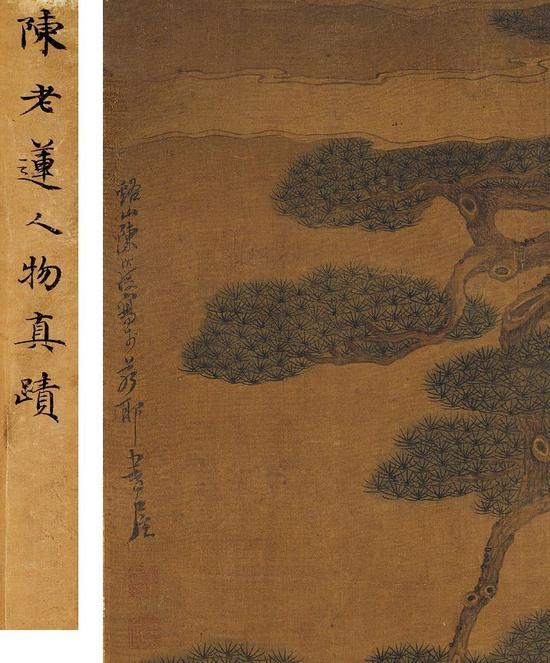 陳老蓮人物真蹟
谿山陳洪綬寫於若耶書屋